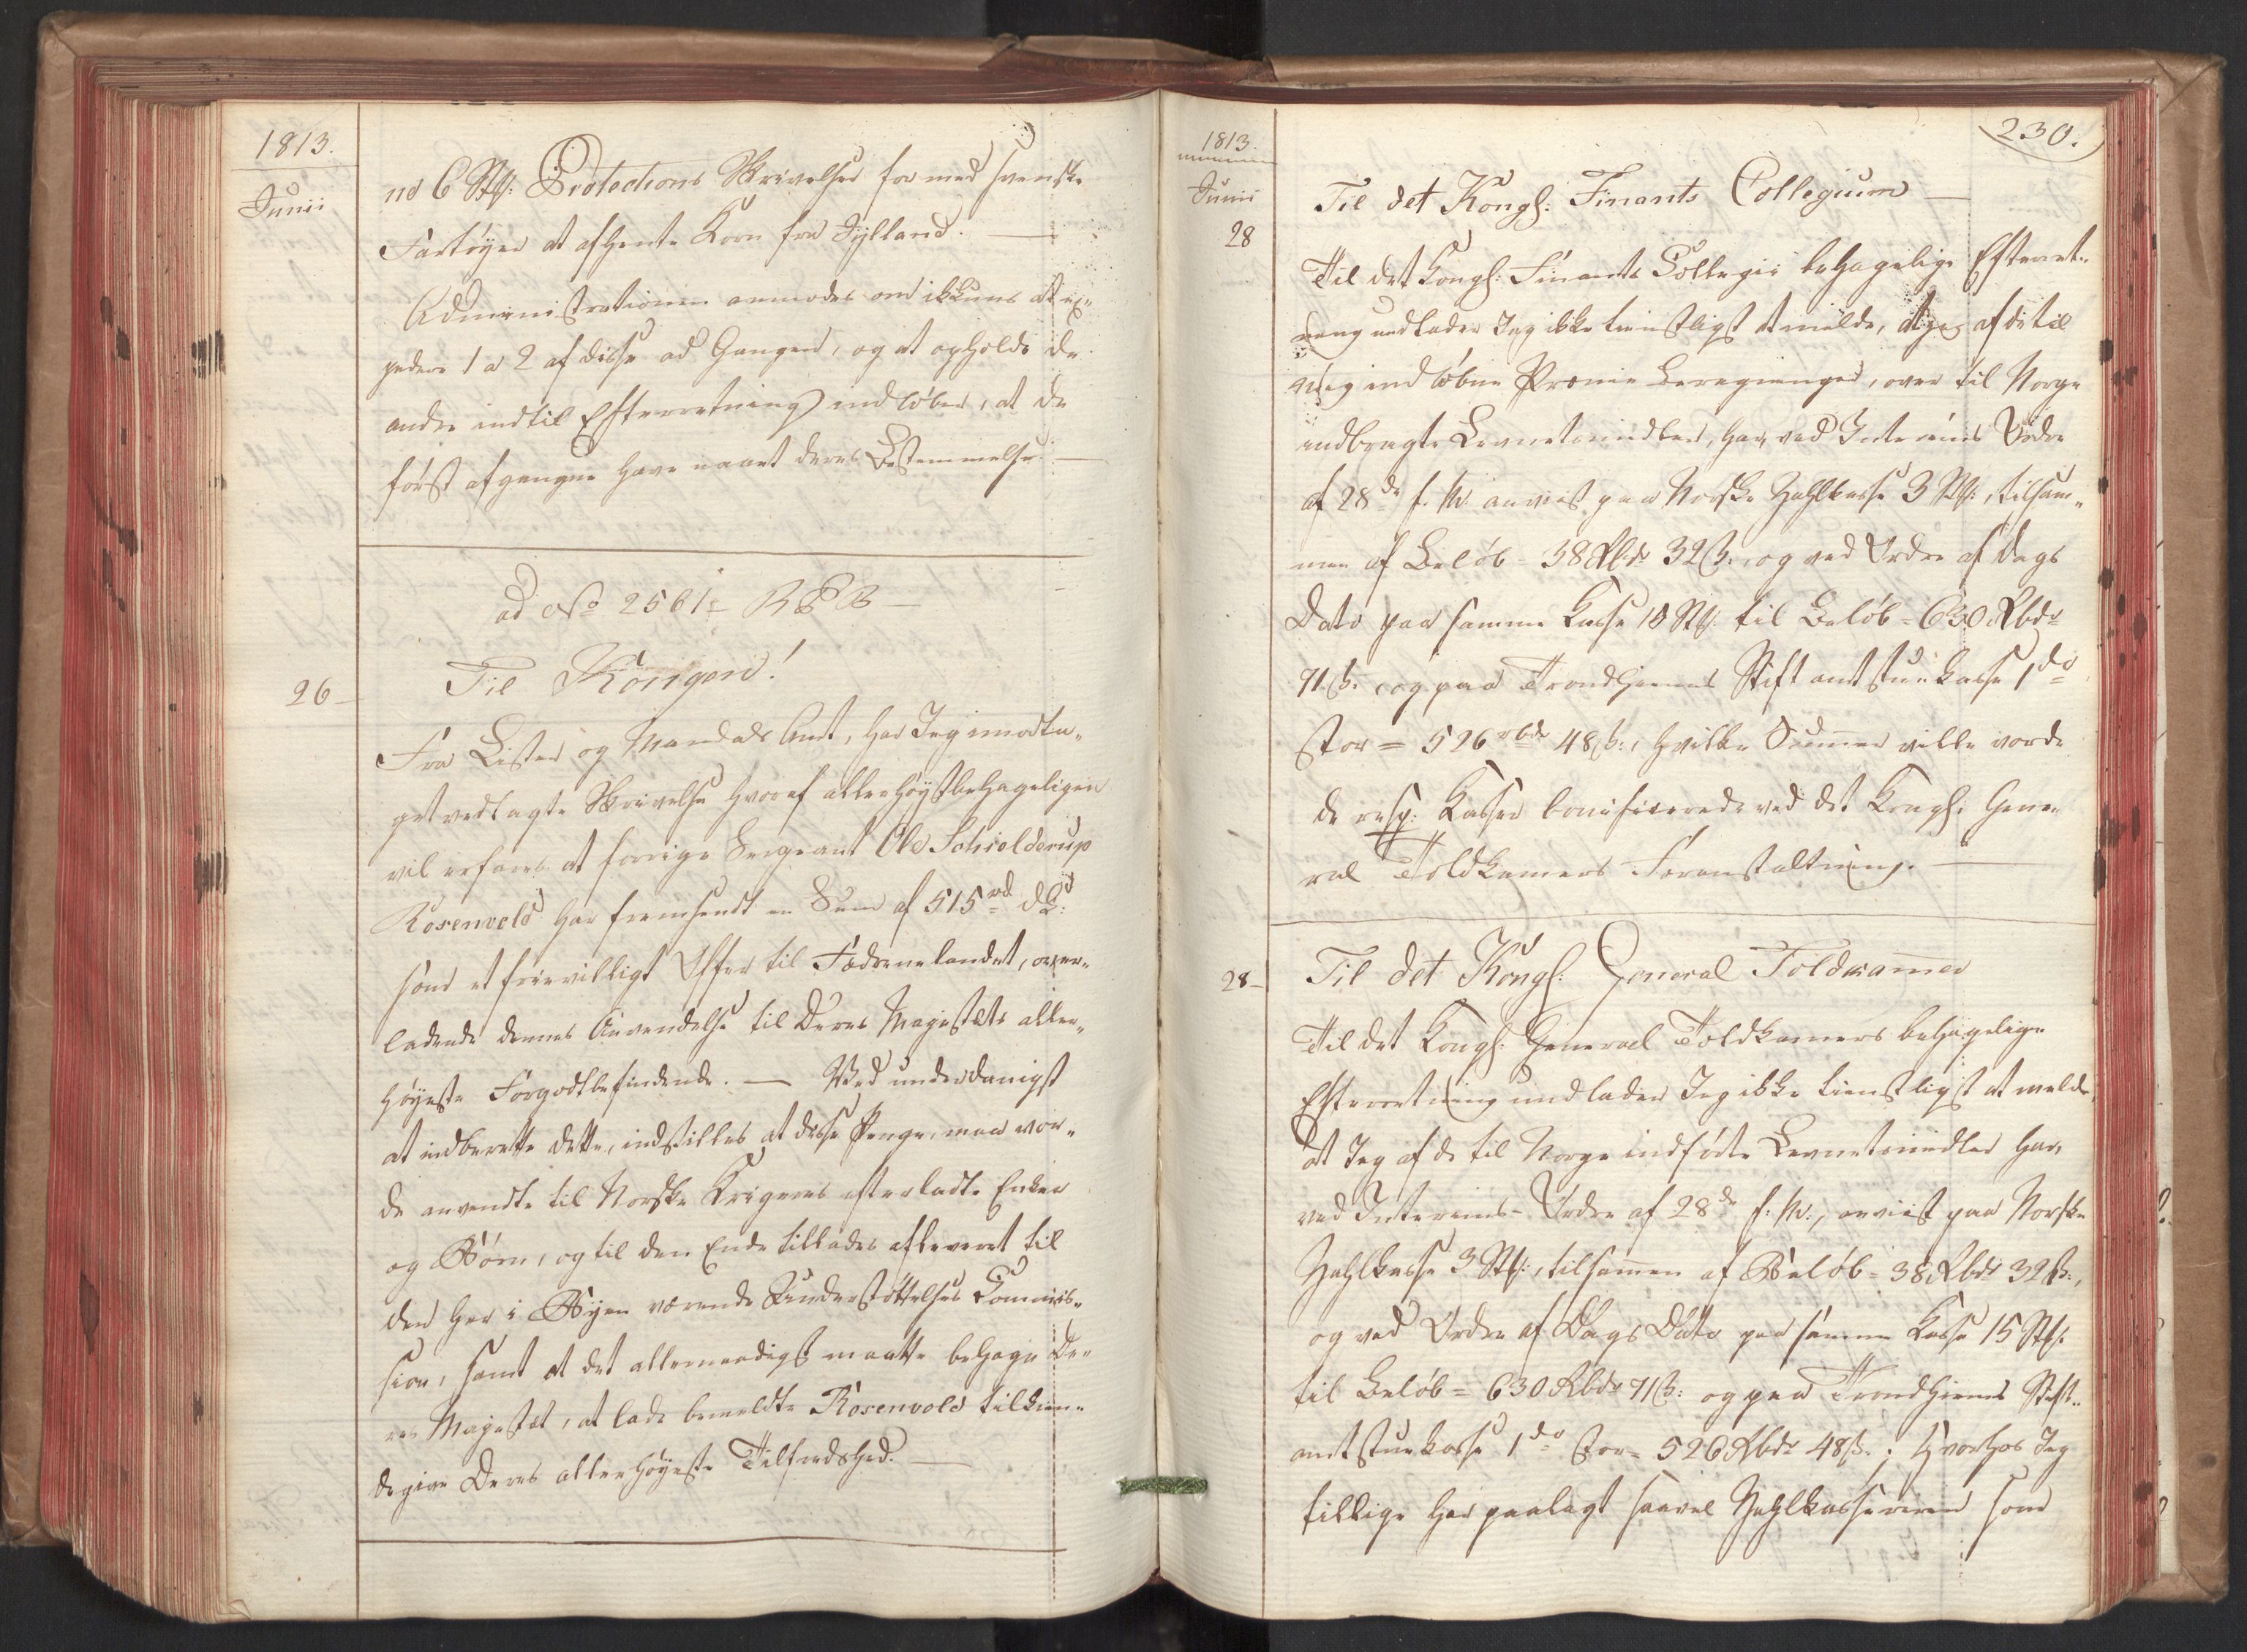 1813.
Junii
nd 6 Stk: Protections Skrivelser for med svenske
Fartöyer at afhente Korn fra Jylland. —
Administrationen anmodes om ikkuns at ex-
pedere 1 a 2 af disse ad Gangen, og at opholde de
andre indtil Efterretning indlöber, at de
först afgangne have naaet deres Bestemmelse. —
ad No 2561 =
26 –
Til Kongen!
Fra Lister og Mandals Amt, har Jeg imodta-
get vedlagte Skrivelse hvoraf allerhöystbehageligen
vil erfares at forrige Sergeant Ole Schielderup
Rosenvold har fremsendt en Sum af 515 rd D.C.
som et frievilligt Offer til Fædrenelandet, over-
ladende dennes Anvendelse til Deres Majestæts aller-
höyeste Forgodtbefindende. — Ved underdanigst
at indberette dette, indstilles at disse Penge, maa vor-
de anvendte til Norske Krigeres efterladte Enker
og Börn, og til den Ende tillades afleveret til
den her i Byen værende Understöttelses Commis-
sion, samt at det allernaadigst maatte behage De-
res Majestæt, at lade bemeldte Rosenvold tilkien-
degive Deres allerhöyeste Tilfredshed. —
230.
1813.
Junii
28
Til det Kongl: Finants Collegium —
Til det Kongl: Finants Collegii behagelige Efterret-
ning undlader Jeg ikke tienstligst at melde, at jeg af de til
mig indlöbne Præmie Beregninger, over til Norge
indbragte Levnetsmidler, har, ved Interims Ordre
af 28de f. M. anviist paa Norske Zahlkasse 3 Stk:, tilsam-
men af Belöb = 38 Rbdr 32 ß:, og ved Ordre af Dags
Dato paa samme Kasse 15 Stk: til Belöb = 630 Rbdr
71 ß: og paa Trondhiems Stiftamtstuekasse 1 do
stor = 526 rbdr 48 ß:, hvilke Summer ville vorde
de resp: Kasser bonificerede ved det Kongl: Gene-
ral Toldkamers Foranstaltning. —
28 –
Til det Kongl: General Toldkammer
Til det Kongl: General Toldkamers behagelige
Efterretning undlader Jeg ikke tienstligst at melde,
at Jeg af de til Norge indförte Levnetsmidler har,
ved Interims-Ordre af 28de f: M:, anviist paa Norske
Zahlkasse 3 Stk:, tilsammen af Belöb = 38 Rbdr 32 ß:,
og ved Ordre af Dags Dato paa samme Kasse 15 Stk:
til Belöb = 630 Rbdr 71 ß: og paa Trondhiems Stift-
amtstuekasse 1 do stor = 526 Rbdr 48 ß:; hvorhos Jeg
tillige har paalagt saavel Zahlkassereren som